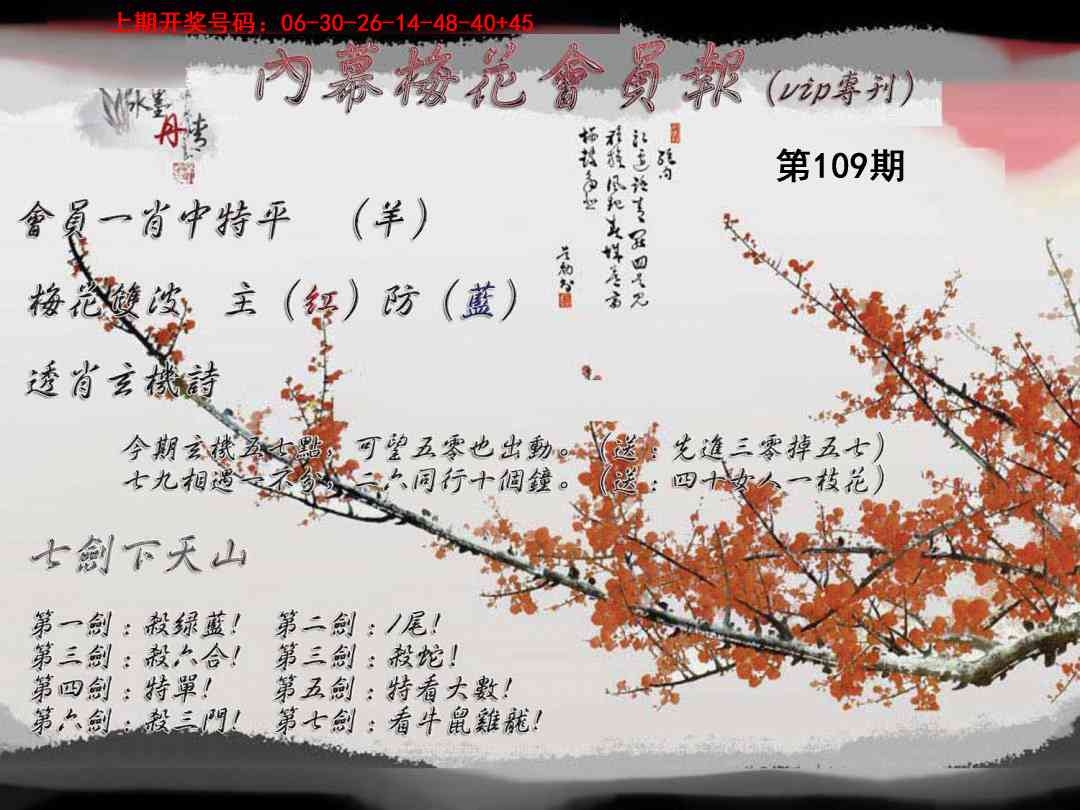 上期开奖号码：06-30-26-14-48-40+45
內幕梅花會員報（vip專刊）
水墨
丹青
第109期
會員一肖中特平 （羊）
梅花雙波 主（紅）防（藍）
透肖玄機詩
今期玄機五七點，可望五零也出動。（送：先進三零掉五七）
七九相遇一不分，二六同行十個鐘。（送：四十女人一枝花）
七劍下天山
第一劍：殺绿藍！ 第二劍：1尾！
第三劍：殺六合！ 第三劍：殺蛇！
第四劍：特單！ 第五劍：特看大數！
第六劍：殺三門！ 第七劍：看牛鼠雞龍！